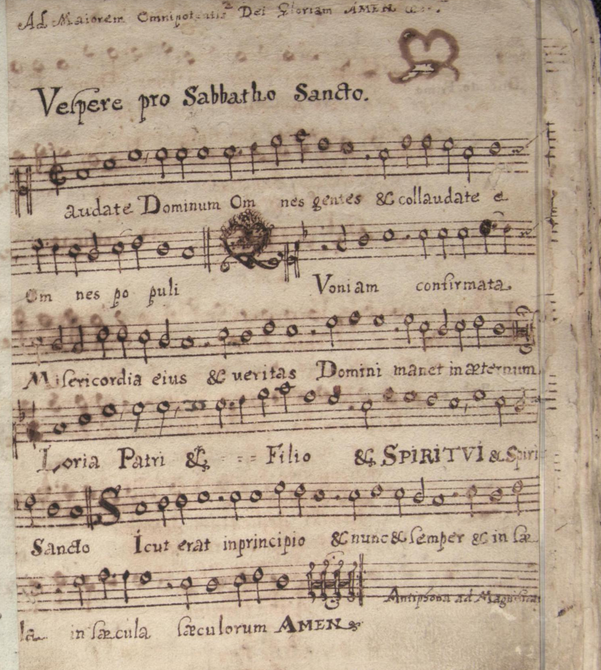 Ad Maiorem Omnipotentis Dei Gloriam AMEN
Vespere pro Sabbatho Sancto.
audate Dominum Om nes gentes & collaudate e
Om nes po puli Voniam confirmata
Misericordia eius & veritas Domini manet in æternum
Loria Patri & Filio & SPIRITVI & Spiri
Sancto Icut erat inprincipio & nunc & semper & in sæ
la in sæcula sæculorum AMEN
Antiphona ad Magnificat